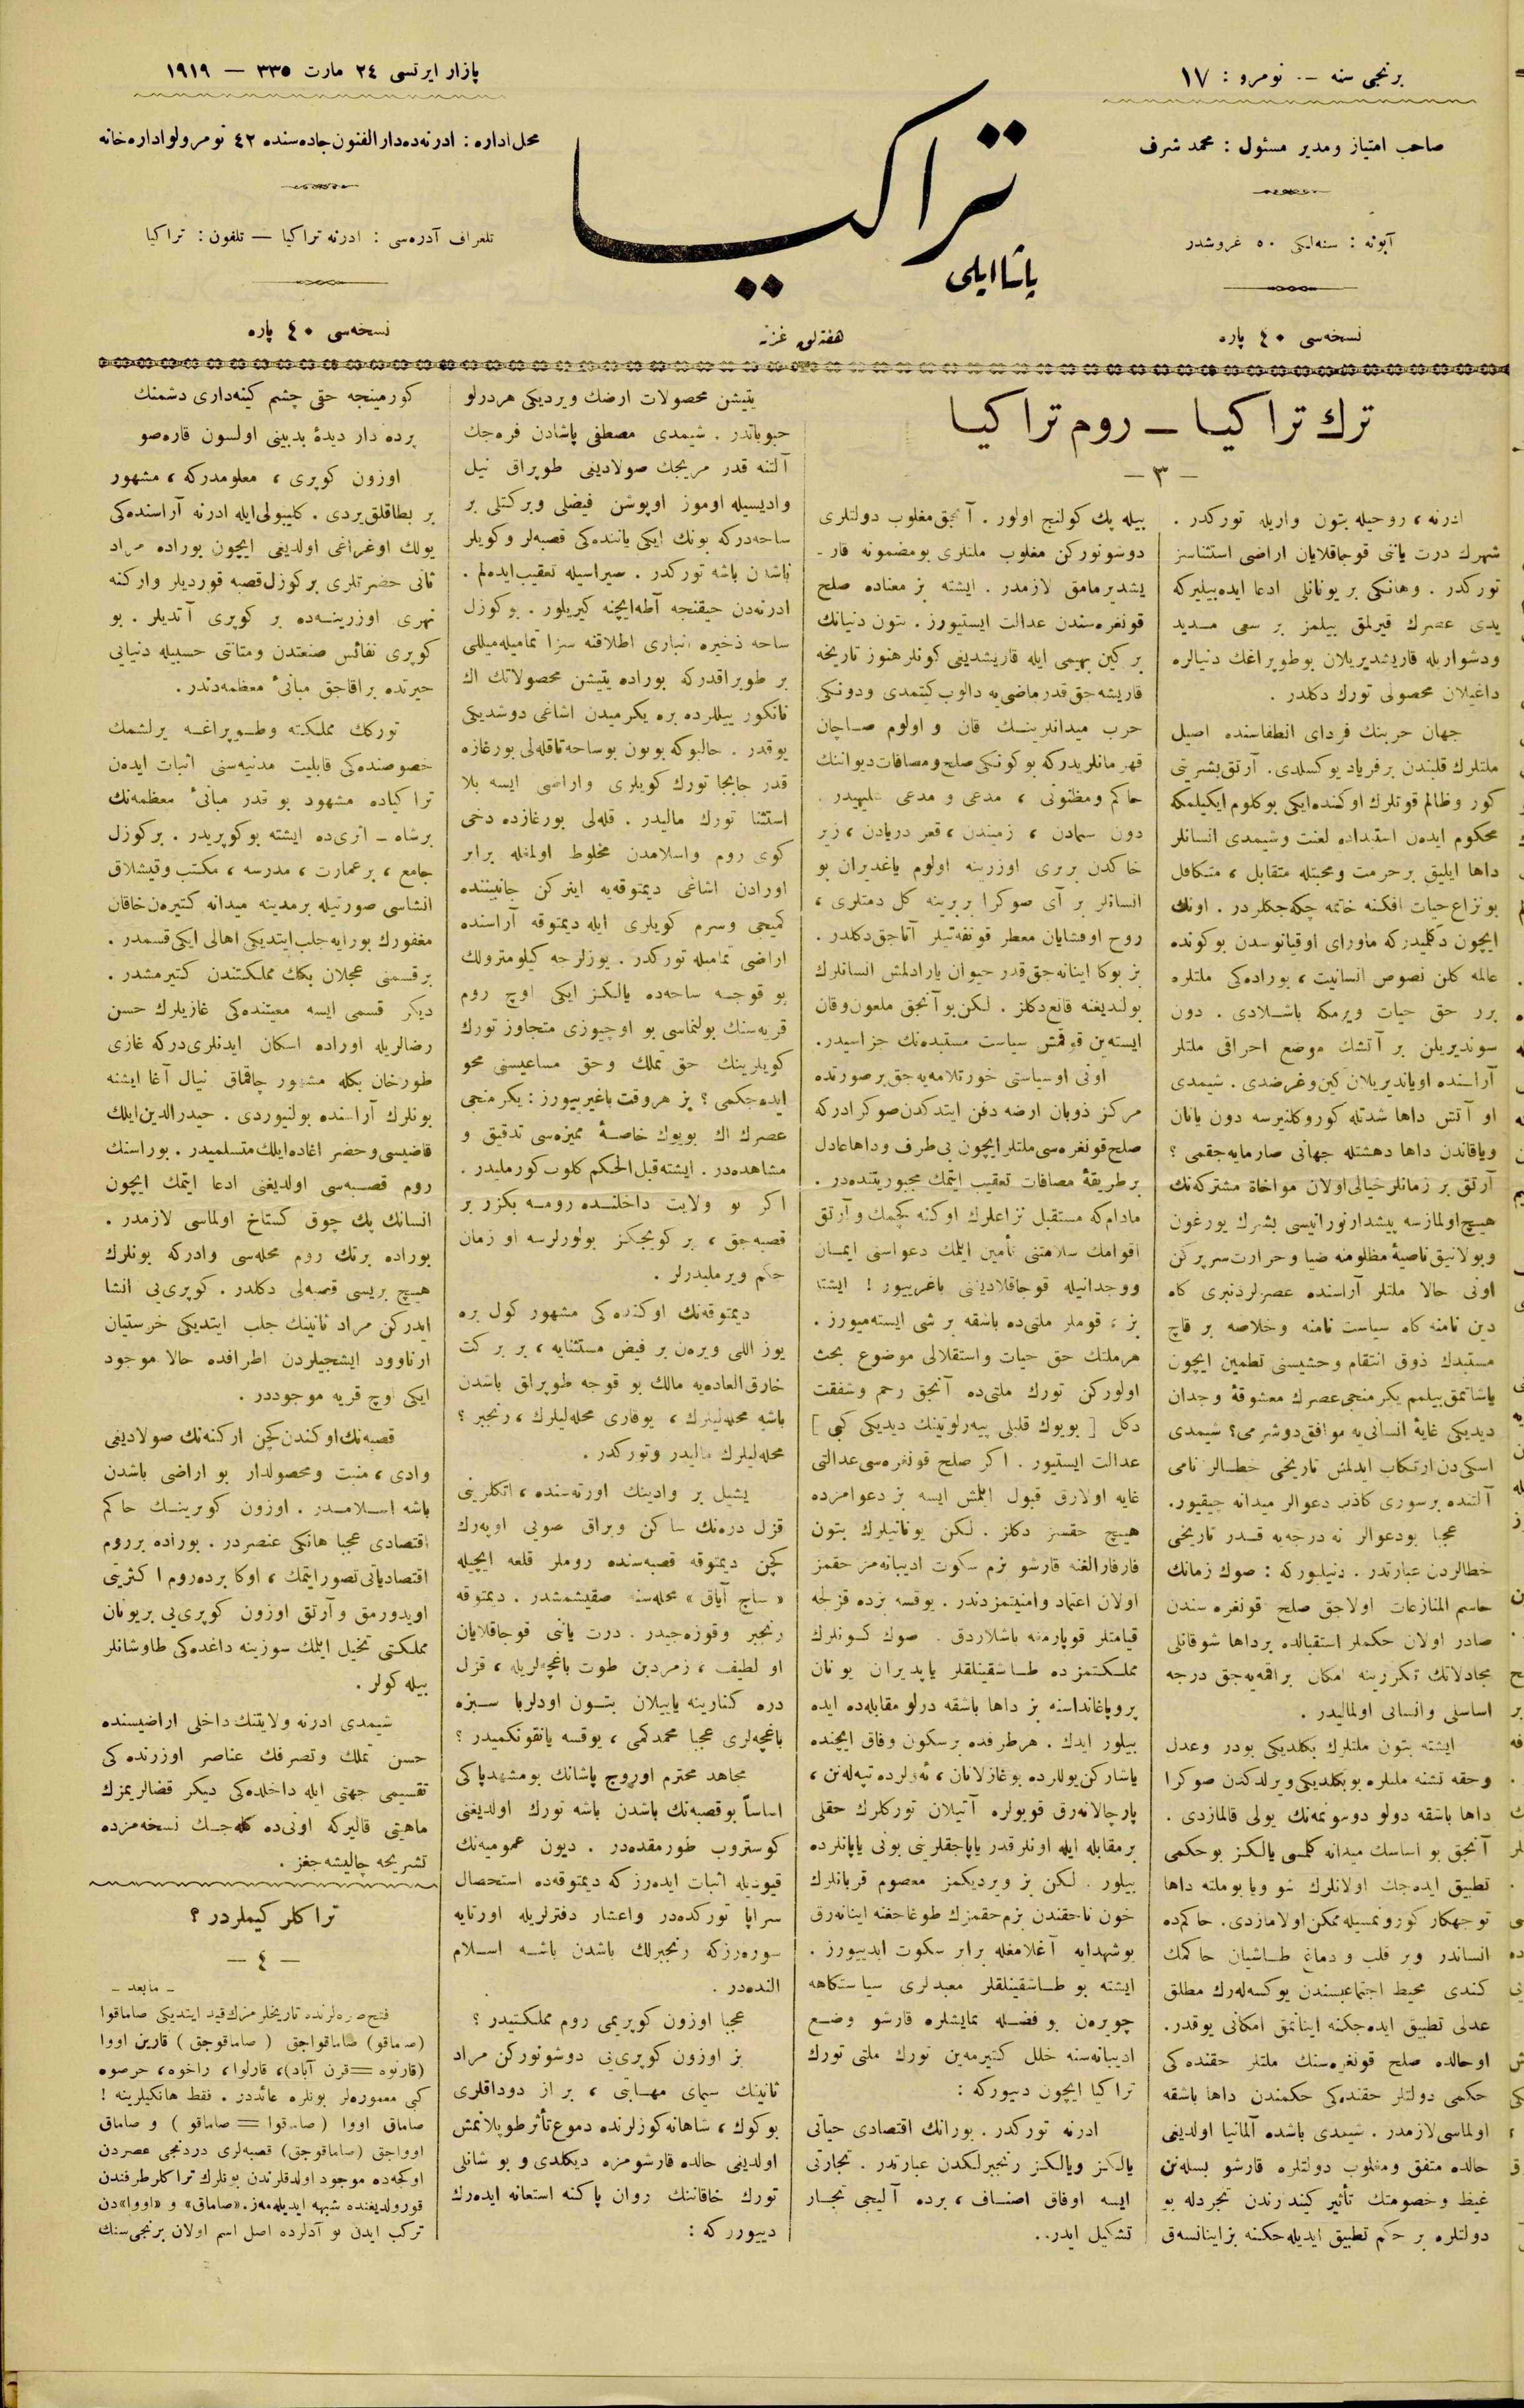 برنجی سنه — نومرو : ١٧
صاحب امتیاز ومدیر مسئول : محمد شرف
آبونه : سنه‌لکی ٥٠ غروشدر
نسخه‌سی ٤٠ پاره
تراکیا
پاشاایلی
هفته‌لق غزته
پازار ایرتسی ٢٤ مارت ٣٣٥ — ١٩١٩
محل اداره : ادرنه‌ده دارالفنون جاده‌سنده ٤٢ نومرولو اداره‌خانه
تلغراف آدره‌سی : ادرنه تراکیا — تلفون : تراکیا
نسخه‌سی ٤٠ پاره
ترك تراکیا — روم تراکیا
— ٣ —
ادرنه ، روحیله بتون واریله تورکدر .
شهرك درت یاننی قوجاقلایان اراضی استثناسز
تورکدر . وهانکی بر یونانلی ادعا ایده‌بیلیرکه
یدی عصرك قیرلمق بیلمز بر سعی مدید
ودشواریله قاریشدیریلان بوطوپراغك دنیالره
داغیلان محصولی تورك دکلدر .
جهان حربنك فردای انطفاسنده اصیل
ملتلرك قلبندن برفریاد یوکسلدی. آرتق بشریتی
کور وظالم قوتلرك اوکنده ایکی بوکلوم ایکیلمکه
محکوم ایدن استبداده لعنت وشیمدی انسانلر
داها ایلیق برحرمت ومحبتله متقابل ، متکافل
بونزاع حیات افکنه خاتمه چکه‌جکلردر . اونك
ایچون دکلمیدرکه ماورای اوقیانوسدن بوکونده
عالمه کلن نصوص انسانیت ، بوراده‌کی ملتلره
برر حق حیات ویرمکه باشلادی . دون
سوندیریلن بر آتشك موضع احراقی ملتلر
آراسنده اویاندیریلان کین وغرضدی . شیمدی
او آتش داها شدتله کوروکلنیرسه دون یانان
ویاقاندن داها دهشتله جهانی صارمایه‌جقمی ؟
آرتق بر زمانلر خیالی اولان مواخاة مشترکه‌نك
هیچ اولمازسه پیشدار نورانیسی بشرك یورغون
وبولانیق ناصیهٔ مظلومنه ضیا وحرارت سرپرکن
اونی حالا ملتلر آراسنده عصرلردنبری کاه
دین نامنه کاه سیاست نامنه وخلاصه بر قاچ
مستبدك ذوق انتقام وحشیسنی تطمین ایچون
یاشاتمق بیلمم یکرمنجی عصرك معشوقهٔ وجدان
دیدیکی غایهٔ انسانی‌یه موافق دوشرمی؟ شیمدی
اسکی‌دن ارتکاب ایدلمش تاریخی خطالر نامی
آلتنده برسوری کاذب دعوالر میدانه چیقیور.
عجبا بودعوالر نه درجه‌یه قدر تاریخی
خطالردن عبارتدر . دنیلیورکه : صوك زمانك
حاسم المنازعات اولاجق صلح قونغره سندن
صادر اولان حکملر استقبالده برداها شوقانلی
مجادلاتك تکررینه امکان براقمیه‌جق درجه
اساسلی وانسانی اولمالیدر .
ایشته بتون ملتلرك بکلدیکی بودر وعدل
وحقه تشنه ملتلره بوبکلدیکی ویرلدکدن صوکرا
داها باشقه دولو دوسونمه‌نك یولی قالمازدی .
آنجق بو اساسك میدانه کلمسی یالکز بوحکمی
تطبیق ایده‌جك اولانلرك شو ویا بوملته داها
توجهکار کورونمسیله ممکن اولامازدی. حاکم‌ده
انساندر وبر قلب و دماغ طاشیان حاکمك
کندی محیط اجتماعیسندن یوکسه‌له‌رك مطلق
عدلی تطبیق ایده‌جکنه اینانمق امکانی یوقدر.
اوحالده صلح قونغره‌سنك ملتلر حقنده‌کی
حکمی دولتلر حقنده‌کی حکمندن داها باشقه
اولماسی لازمدر . شیمدی باشده آلمانیا اولدیغی
حالده متفق ومغلوب دولتلره قارشو بسله‌نن
غیظ وخصومتك تأثیر کیندرندن تجردله بو
دولتلره بر حکم تطبیق ایدیله‌جکنه بزاینانسه‌ق
بیله پك کولنج اولور . آنجق مغلوب دولتلری
دوشونورکن مغلوب ملتلری بومضمونه قار-
یشدیرمامق لازمدر . ایشته بز معناده صلح
قونغره‌سندن عدالت ایستیورز . بتون دنیانك
بر کین بهیمی ایله قاریشدیغی کونلر هنوز تاریخه
قاریشه‌جق قدر ماضی‌یه دالوب کیتمدی ودونکی
حرب میدانلرینك قان و اولوم صاچان
قهرمانلریدرکه بوکونکی صلح ومصافات دیوانتك
حاکم ومظنونی ، مدعی و مدعی علیهیدر .
دون سمادن ، زمیندن ، قعر دریادن ، زیر
خاکدن بربری اوزرینه اولوم یاغدیران بو
انسانلر بر آی صوکرا بربرینه کل دمتلری ،
روح اوفشایان معطر قونفه‌تیلر آتاجق دکلدر.
بز بوکا اینانه‌جق قدر حیوان یارادلمش انسانلرك
بولندیغنه قانع دکلز . لکن بو آنجق ملعون وقان
ایسته‌ین قوقمش سیاست مستبده‌نك جزاسیدر.
اونی اوسیاستی خورتلامه‌یه‌جق برصورتده
مرکز ذوبان ارضه دفن ایتدکدن صوکرادرکه
صلح قونغره‌سی ملتلر ایچون بی‌طرف وداها عادل
برطریقهٔ مصافات تعقیب ایتمك مجبوریتنده‌در .
مادام‌که مستقبل نزاعلرك اوکنه کچمك وآرتق
اقوامك سلامتنی تأمین ایتمك دعواسنی ایمان
ووجدانیله قوجاقلادیغنی باغریور ! ایشته
بز ، قوملر ملتی‌ده باشقه بر شی ایسته‌میورز .
هرملتك حق حیات واستقلالی موضوع بحث
اولورکن تورك ملتی‌ده آنجق رحم وشفقت
دکل [ بویوك قلبلی پیه‌رلوتینك دیدیکی کبی ]
عدالت ایستیور . اکر صلح قونغره‌سی عدالتی
غایه اولارق قبول ایتمش ایسه بز دعوامزده
هیچ حقسز دکلز . لکن یونانیلرك بتون
فارفارالغنه قارشو بزم سکوت ادیبانه‌مز حقمز
اولان اعتماد وامنیتمزدندر . یوقسه بزده قزلجه
قیامتلر قوپارمغه باشلاردق . صوك کونلرك
مملکتمزده طاشقینلقلر یاپدیران یونان
پروپاغانداسنه بز داها باشقه درلو مقابله‌ده ایده
بیلور ایدك . هرطرفده برسکون وفاق ایچنده
یاشارکن یوللرده بوغازلانان ، ئه‌ولرده تپه‌له‌نن ،
پارچالانه‌رق قویولره آتیلان تورکلرك حقلی
برمقابله ایله اونلر قدر یاپاجقلرینی بونی یاپانلرده
بیلور . لکن بز ویردیکمز معصوم قربانلرك
خون ناحقندن بزم حقمزك طوغاجغنه اینانه‌رق
بوشهدایه آغلامغله برابر سکوت ایدییورز .
ایشته بو طاشقینلقلر معبدلری سیاستکاهه
چویرن بو فضله نمایشلره قارشو وضع
ادیبانه‌سنه خلل کتیرمه‌ین تورك ملتی تورك
تراکیا ایچون دییورکه :
ادرنه تورکدر . بورانك اقتصادی حیاتی
یالکز ویالکز رنجبرلکدن عبارتدر . تجارتی
ایسه اوفاق اصناف ، برده آلیجی تجار
تشکیل ایدر..
یتیشن محصولات ارضك ویردیکی هردرلو
حبوباتدر . شیمدی مصطفی پاشادن فره‌جك
آلتنه قدر مریجك صولادیغی طوپراق نیل
وادیسیله اوموز اوپوشن فیضلی وبرکتلی بر
ساحه‌درکه بونك ایکی یاننده‌کی قصبه‌لر وکویلر
باشدن باشه تورکدر . سیراسیله تعقیب ایده‌لم .
ادرنه‌دن چیقنجه آطه‌ایچنه کیریلور . بوکوزل
ساحه ذخیره انباری اطلاقنه سزا تمامیله میللی
بر طوپراقدرکه بوراده یتیشن محصولاتك اك
نانکور ییللرده بره یکرمیدن اشاغی دوشدیکی
یوقدر . حالبوکه بوتون بوساحه تاقله‌لی بورغازه
قدر جابجا تورك کویلری واراضی ایسه بلا
استثنا تورك مالیدر . قله‌لی بورغازده دخی
کوی روم واسلامدن مخلوط اولمغله برابر
اورادن اشاغی دیمتوقه‌یه اینرکن جانبیننده
کمیجی وسرم کویلری ایله دیمتوقه آراسنده
اراضی تمامیله تورکدر . یوزلرجه کیلومترولك
بو قوجه ساحه‌ده یالکز ایکی اوچ روم
قریه‌سنك بولنماسی بو اوچیوزی متجاوز تورك
کویلرینك حق تملك وحق مساعیسنی محو
ایده‌جکمی ؟ بز هروقت باغیرییورز : یکرمنجی
عصرك اك بویوك خاصهٔ ممیزه‌سی تدقیق و
مشاهده‌در . ایشته قبل الحکم کلوب کورملیدر .
اکر بو ولایت داخلنده رومه بکزر بر
قصبه‌جق ، بر کویجکز بولورلرسه او زمان
حکم ویرملیدرلر .
دیمتوقه‌نك اوکنده‌کی مشهور کول بره
یوز اللی ویرن بر فیض مستثنایه ، بر برکت
خارق‌العاده‌یه مالك بو قوجه طوپراق باشدن
باشه محله‌لیلرك ، یوقاری محله‌لیلرك ، رنجبر ؟
محله‌لیلرك مالیدر وتورکدر .
یشیل بر وادینك اورته‌سنده ، اتکلرینی
قزل دره‌نك ساکن وبراق صویی اوپه‌رك
کچن دیمتوقه قصبه‌سنده روملر قلعه ایچیله
« ساچ آیاق » محله‌سنه صقیشمشدر . دیمتوقه
رنجبر وقوزه‌جیدر . درت یاننی قوجاقلایان
او لطیف ، زمردین طوت باغچه‌لریله ، قزل
دره کنارینه یاییلان بتون اودلربا سبزه
باغچه‌لری عجبا محمدکمی ، یوقسه یانقونکمیدر ؟
مجاهد محترم اوروج پاشانك بومشهد پاکی
اساساً بوقصبه‌نك باشدن باشه تورك اولدیغنی
کوستروب طورمقده‌در . دیون عمومیه‌نك
قیودیله اثبات ایده‌رز که دیمتوقه‌ده استحصال
سراپا تورکده‌در واعشار دفترلریله اورتایه
سوره‌رزکه رنجبرلك باشدن باشه اسلام
النده‌در .
عجبا اوزون کوپریمی روم مملکتیدر ؟
بز اوزون کوپری‌یی دوشونورکن مراد
ثانینك سیمای مهابتی ، بر از دوداقلری
بوکوك ، شاهانه کوزلرنده دموع تأثر طوپلانمش
اولدیغی حالده قارشومزه دیکلدی و بو شانلی
تورك خاقاننك روان پاکنه استعانه ایده‌رك
دییورز که :
کورمینجه حتی چشم کینه‌داری دشمنك
پرده‌دار دیدهٔ بدبینی اولسون قاره‌صو
اوزون کوپری ، معلومدرکه ، مشهور
بر بطاقلق یردی . کلیبولی ایله ادرنه آراسنده‌کی
یولك اوغراغی اولدیغی ایچون بوراده مراد
ثانی حضرتلری برکوزل قصبه قوردیلر وارکنه
نهری اوزرینه‌ده بر کوپری آتدیلر . بو
کوپری نفائس صنعتدن ومتانتی حسبیله دنیایی
حیرتده براقاجق مبانیٔ معظمه‌دندر.
تورکك مملکته وطوپراغه یرلشمك
خصوصنده‌کی قابلیت مدنیه‌سنی اثبات ایدن
تراکیاده مشهود بو قدر مبانیٔ معظمه‌نك
برشاه - اثری‌ده ایشته بوکوپریدر . برکوزل
جامع ، برعمارت ، مدرسه ، مکتب وقیشلاق
انشاسی صورتیله برمدینه میدانه کتیرن خاقان
مغفورك بورایه جلب ایتدیکی اهالی ایکی قسمدر .
برقسمی عجلان بکك مملکتندن کتیرمشدر .
دیکر قسمی ایسه معیتنده‌کی غازیلرك حسن
رضالریله اوراده اسکان ایدنلری درکه غازی
طورخان بکله مشهور چاقماق نیال آغا ایشته
بونلرك آراسنده بولنیوردی . حیدرالدین ایلك
قاضیسی وحضر اغاده ایلك متسلمیدر . بوراسنك
روم قصبه‌سی اولدیغنی ادعا ایتمك ایچون
انسانك پك چوق کستاخ اولماسی لازمدر .
بوراده برتك روم محله‌سی وادرکه بونلرك
هیچ بریسی قصبه‌لی دکلدر . کوپری‌یی انشا
ایدرکن مراد ثانینك جلب ایتدیکی خرستیان
ارناوود ایشجیلردن اطرافده حالا موجود
ایکی اوچ قریه موجوددر .
قصبه‌نك اوکندن کچن ارکنه‌نك صولادیغی
وادی ، منبت ومحصولدار بو اراضی باشدن
باشه اسلامدر . اوزون کوپرینك حاکم
اقتصادی عجبا هانکی عنصردر . بوراده برروم
اقتصادیاتی تصور ایتمك ، اوکا برده روم اکثریتی
اویدورمق وآرتق اوزون کوپری‌یی بریونان
مملکتی تخیل ایتمك سوزینه داغده‌کی طاوشانلر
بیله کولر .
شیمدی ادرنه ولایتنك داخلی اراضیسنده
حسن تملك وتصرفك عناصر اوزرنده‌کی
تقسیمی جهتی ایله داخلده‌کی دیکر قضالریمزك
ماهیتی قالیرکه اونی‌ده کله‌جك نسخه‌مزده
تشریحه چالیشه‌جغز .
تراکلر کیملردر ؟
— ٤ —
- مابعد -
فتح صره‌لرنده تاریخلرمزك قید ایتدیکی صاماقوا
(صماقو) صاماقواجق ( صاماقوجق ) قارین اووا
(قارنوه = قرن آباد)، قارلوا، راخوه، حرصوه
کبی معموره‌لر بونلره عائددر . فقط هانکیلرینه !
صاماق اووا ( صاماقوا = صاماقو ) و صاماق
اوواجق (صاماقوجق) قصبه‌لری دردنجی عصردن
اوکجه‌ده موجود اولدقلرندن بونلرك تراکلر طرفندن
قورولدیغنده شبهه ایدیله‌مه‌ز. «صاماق» و «اووا»دن
ترکب ایدن بو آدلرده اصل اسم اولان برنجی‌سنك